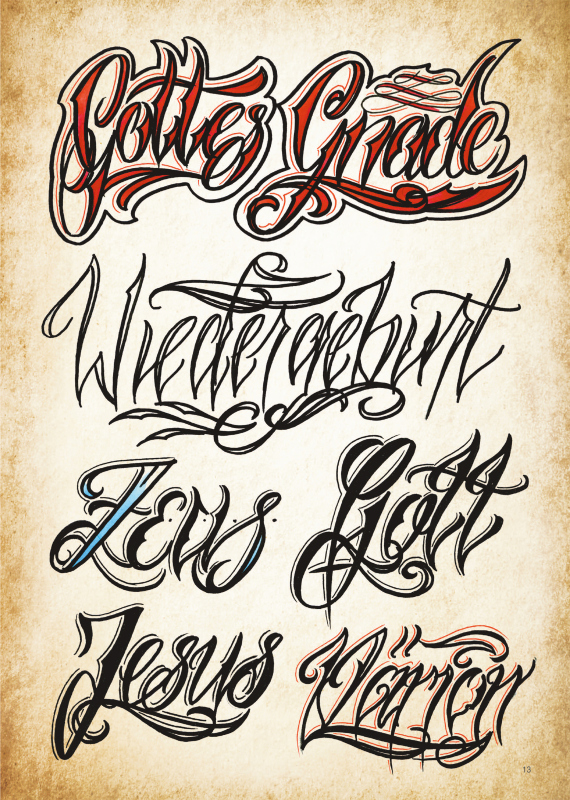 Gottes Gnade
Wiedergeburt
Zeus Gott
Jesus
13